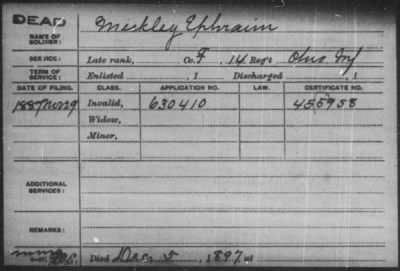 DEAD
NAME OF SOLDIER: Mickley Ephraim
SERVICE: Late rank, Co. F, 14 Reg't Ohio Inf
TERM OF SERVICE: Enlisted , 1 Discharged , 1
DATE OF FILING. CLASS. APPLICATION NO. LAW. CERTIFICATE NO.
1887 Nov 29 Invalid, 630410 455958
Widow,
Minor,
ADDITIONAL SERVICES:
REMARKS:
Died Dec. 5, 1897, at